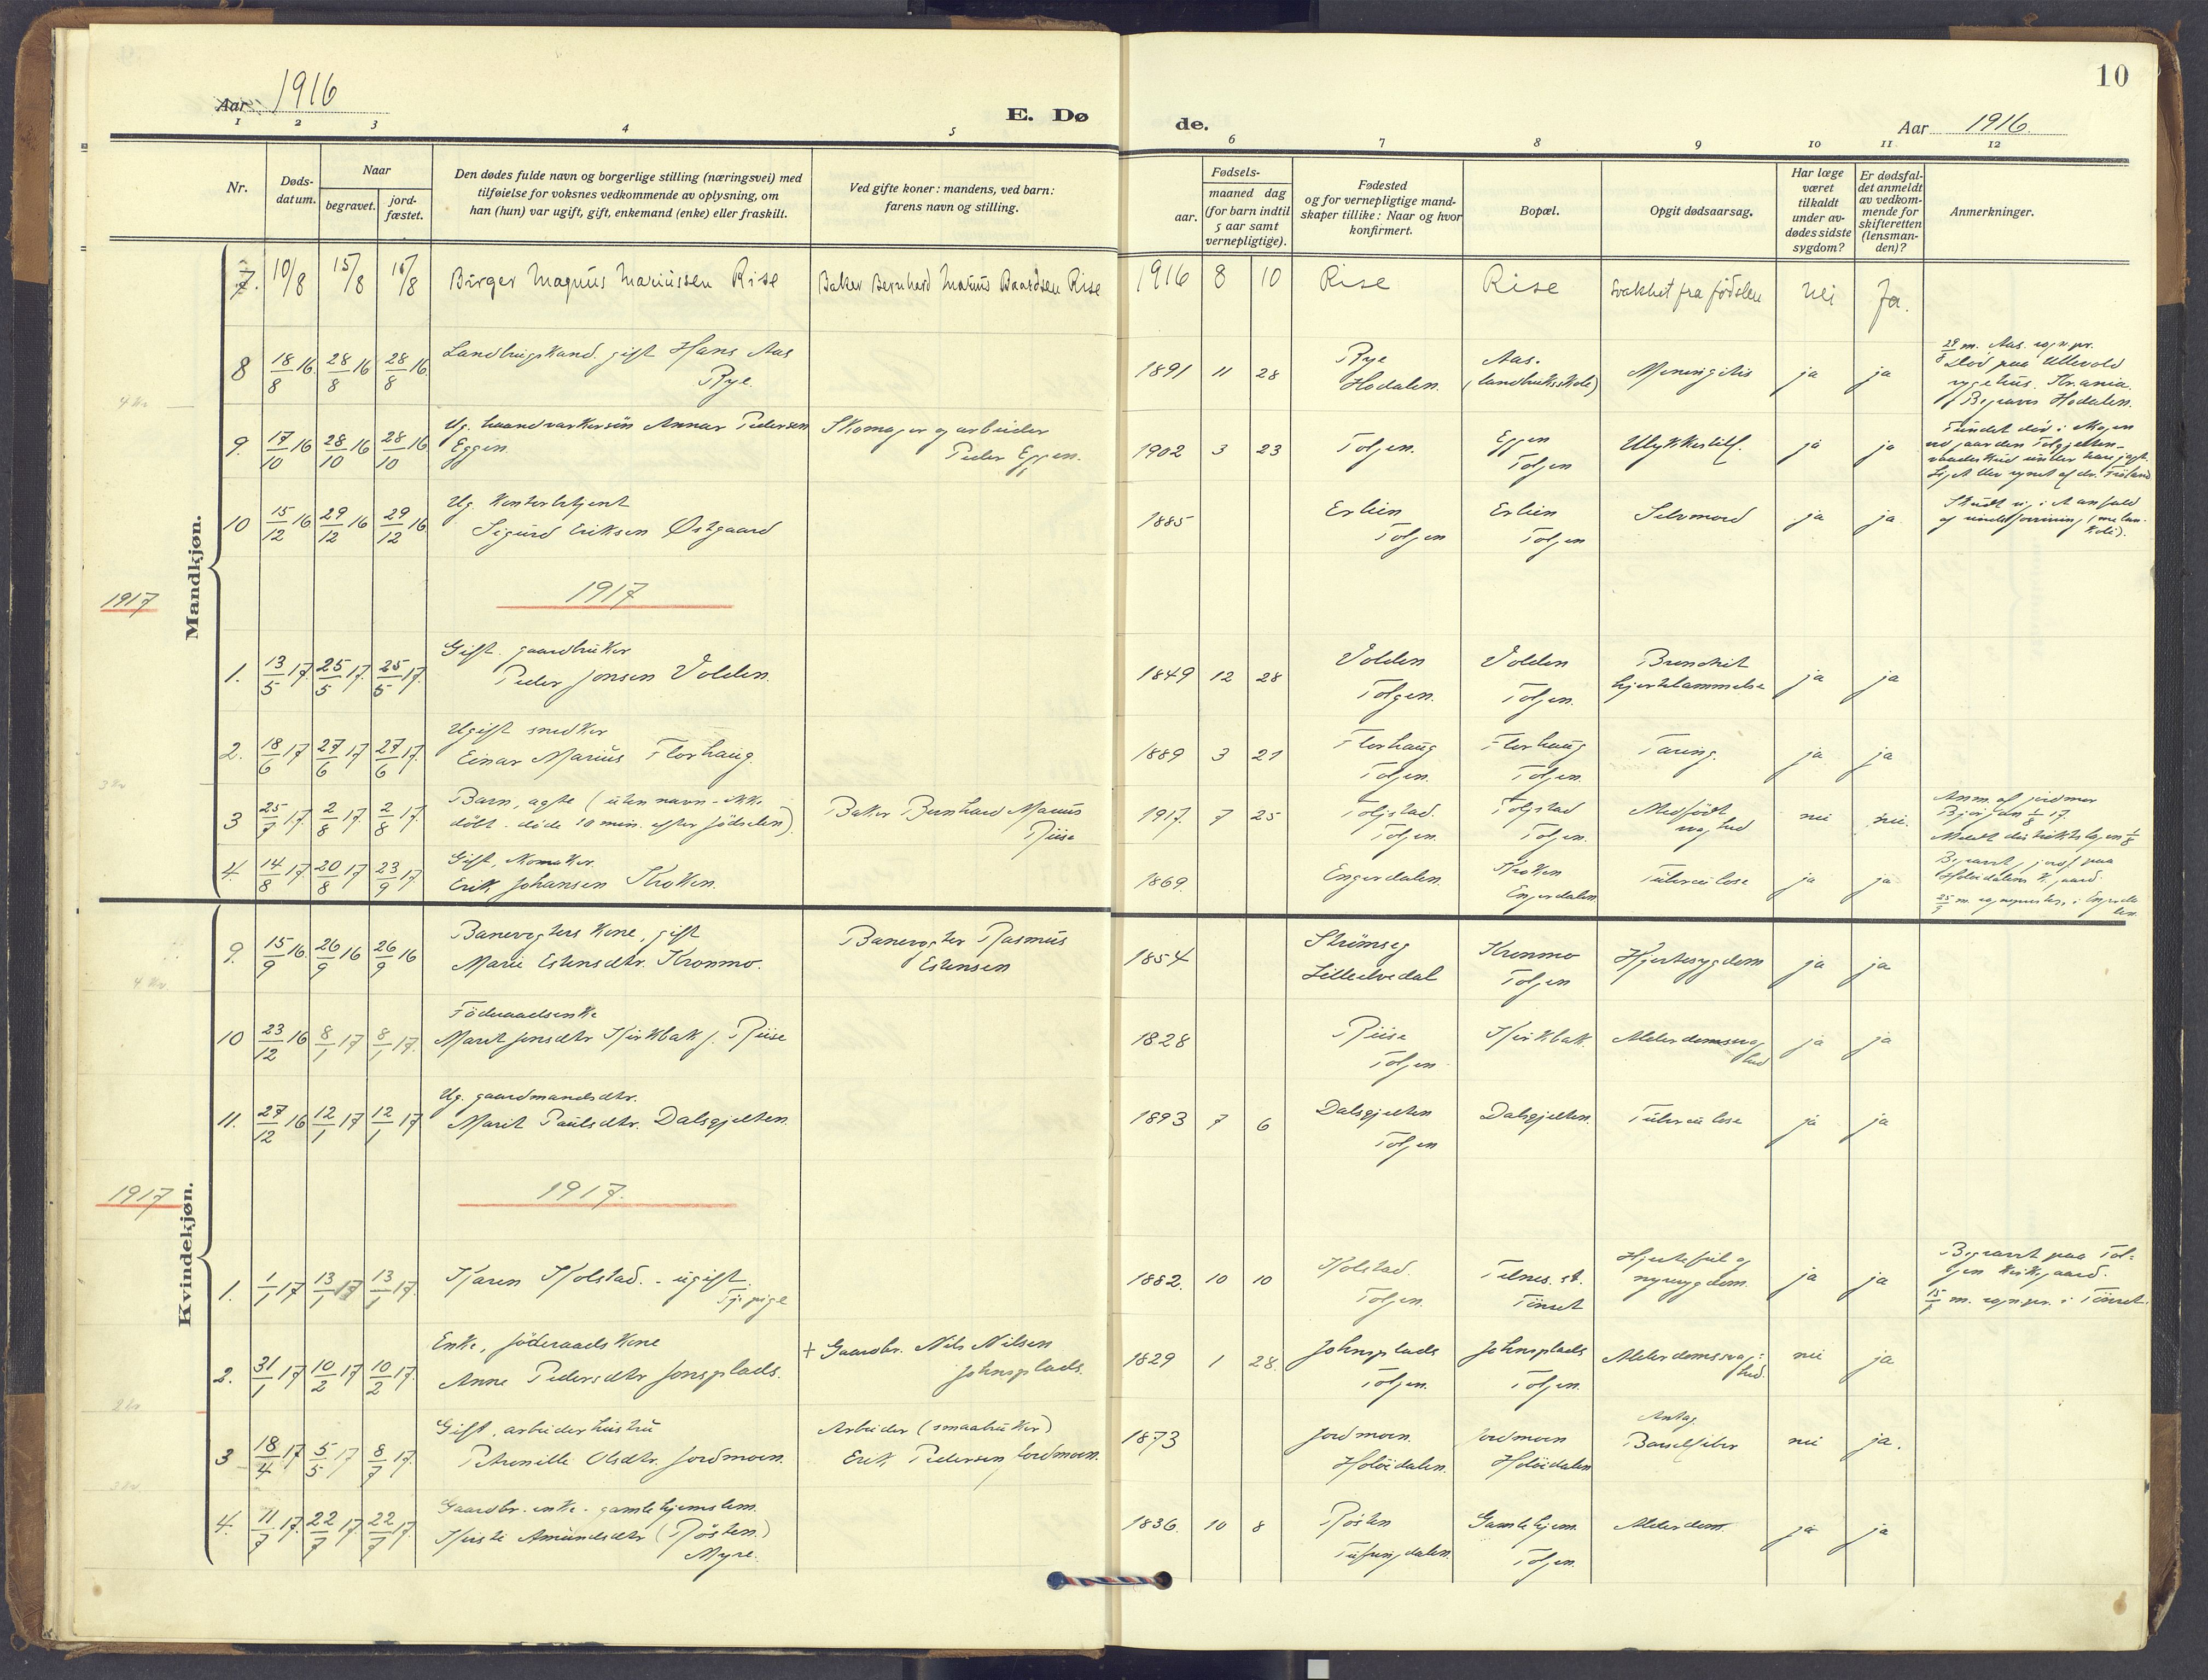 10
Aar 1916
E. Dø
de.
Aar 1916.
1 2 3 4 5 6 7 8 9 10 11 12
Nr.
Døds-
datum.
Naar
begravet.
jord-
fæstet.
Den dødes fulde navn og borgerlige stilling (næringsvei) med
tilføielse for voksnes vedkommende av oplysning, om
han (hun) var ugift, gift, enkemand (enke) eller fraskilt.
Ved gifte koner: mandens, ved barn:
farens navn og stilling.
Fødsels-
aar.
maaned dag
(for barn indtil
5 aar samt
vernepligtige).
Fødested
og for vernepligtige mand-
skaper tillike: Naar og hvor
konfirmert.
Bopæl.
Opgit dødsaarsag.
Har læge
været
tilkaldt
under av-
dødes sidste
sygdom?
Er dødsfal-
det anmeldt
av vedkom-
mende for
skifteretten
(lensman-
den)?
Anmerkninger.
Mandkjøn.
7. 10/8 15/8 15/8 Birger Magnus Mariussen Rise Baker Bernhard Marius Baardsen Rise 1916 8 10 Rise Rise Svakhet fra fødslen Nei Ja.
8 18/8 16. 28/8 16 28/8 16. Landbrugskand. gift Hans Aas
Rye. 1891 11 28 Rye
Hodalen. Aas.
(landbruksskole) Meningitis ja ja 28/8 m. Aas. sogn.pr.
Død paa Ullevold
sygehus. Kr.ania.
Begraves Hodalen.
4 Kr
9. 17/10 16 28/10 16 28/10 16 Ug. haandværkersøn Annar Pedersen
Eggen Skomager og arbeider
Peder Eggen. 1902 3 23 Tolgen. Eggen
Tolgen Ulykkestilf. ja ja Fundet død i skogen
10 15/12 16 29/12 16 29/12 16. Ug. Kontorbetjent
Sigurd Eriksen Østgaard 1885 Erlien
Tolgen Erlien
Tolgen Selvmord ja ja Skudt sig i et anfald
af sindsforvirring (melan-
koli).
1917
1917
1. 13/5 17. 25/5 17. 25/5 17. Gift. gaardbruker
Peder Jonsen Volden. 1849 12 28 Volden
Tolgen. Volden
Tolgen. Bronchit
hjertelammelse ja ja
2. 18/6 17 27/6 17 27/6 17. Ugift snedker
Einar Marius Florhaug. 1889 3 21 Florhaug
Tolgen. Florhaug
Tolgen. Tæring. ja ja
3 Kr
3 25/7 17. 2/8 17. 2/8 17. Barn, ægte (uten navn - ikke
døbt. døde 10 min. efter fødselen). Baker Bernhard Marius
Riise 1917. 7 25 Tolgstad.
Tolgen. Tolgstad
Tolgen. Medfødt
svaghed nei nei. Anm. af jordmor
4. 14/8 17. 20/8 17 23/9 17. Gift, skomaker.
Erik Johansen Kroken. 1869. Engerdalen. Kroken
Engerdalen Tuberculose ja ja Begravet, jordf. paa
Holøidalens K.gaard.
Kvindekjøn.
9. 15/9 16. 26/9 16 26/9 16 Banevogters kone, gift
Marie Estensdtr. Kronmo. Banevogter Rasmus
Estensen 1854 Strømseg
Lilleelvedal Kronmo
Tolgen Hjertesygdom ja ja
4 Kr.
10 23/12 16 8/1 17 8/1 17. Föderaadsenke
Marit Jonsdtr Kirkbak f. Riise 1828 Riise
Tolgen Kirkbak. Alderdomssvag
hed ja ja
11. 27/12 16 12/1 17 12/1 17 Ug. gaardmandsdtr.
Marit Paulsdtr. Dalsgjelten. 1893 7 6 Dalsgjelten
Tolgen Dalsgjelten. Tuberculose ja ja
1917
1917.
1. 1/1 17 13/1 17 13/1 17. Karen Kolstad. - ugift.
Tj. pige 1882. 10 10 Kolstad.
Tolgen. Telnes. st.
Tönset Hjertefeil og
nyresygdom. ja ja Begravet paa Tol-
gen kirkegaard.
15/1 m. sognepr. i Tönset.
2. 31/1 17 10/2 17 10/2 17. Enke, föderaadskone
Anne Pedersdtr Jonsplads. + Gaardbr. Nils Nilsen
Johnsplads. 1829 1 28. Johnsplads
Tolgen. Johnsplads
Tolgen. Alderdomssvag-
hed. nei ja
2 kr
3 18/4 17 5/5 17 8/7 17. Gift, arbeiderhustru
Petronille Olsdtr. Jordmoen. Arbeider (smaabruker)
Erik Pedersen Jordmoen. 1873 Jordmoen.
Holöidalen. Jordmoen
Holöidalen Antag.
Barselfeber nei ja.
3 Kr
4. 11/7 17. 22/7 17. 22/7 17. Gaardbr. enke. gamlehjemslem.
Kirsti Amundsdtr (Røsten.)
Myre. 1836. 10 8 Røsten
Tufsingdalen. Gamlehjem.
Tolgen. Alderdom. ja ja